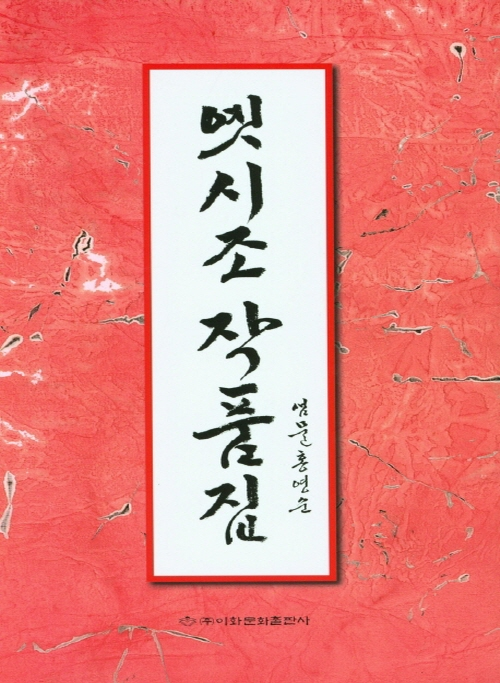 옛시조 작품집
샘물 홍영순
(주)이화문화출판사